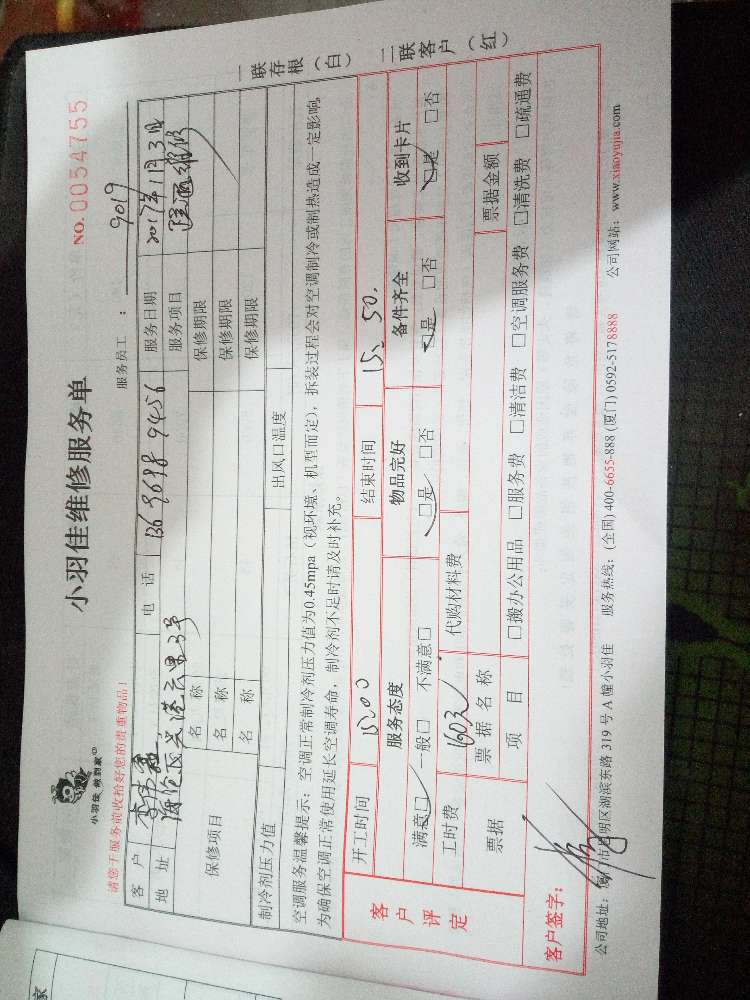 小羽佳 做到家
小羽佳维修服务单
NO.0054755
请您于服务前收拾好您的贵重物品!
服务员工: 9019
客户
电话 136 9698 9456
服务日期 2017年11月3日
地址
服务项目 维修
保修项目
名称 保修期限
名称 保修期限
名称 保修期限
制冷剂压力值 出风口温度
空调服务温馨提示:空调正常制冷剂压力值为0.45mpa(视环境、机型而定),拆装过程会对空调制冷或制热造成一定影响,
为确保空调正常使用延长空调寿命,制冷剂不足时请及时补充。
一联存根(白) 二联客户(红)
客户评定
开工时间 15:00 结束时间 15:50.
服务态度 物品完好 备件齐全 收到卡片
满意□ 一般□ 不满意□ □是 □否 □是 □否 □是 □否
工时费 160元 代购材料费
票据 票据名称 票据金额
项目 □搬办公用品 □服务费 □清洁费 □空调服务费 □清洗费 □疏通费
客户签字:
公司地址:厦门市思明区湖滨东路 319 号 A 幢小羽佳 服务热线:(全国) 400-6655-888 (厦门) 0592-5178888 公司网站:www.xiaoyujia.com
家